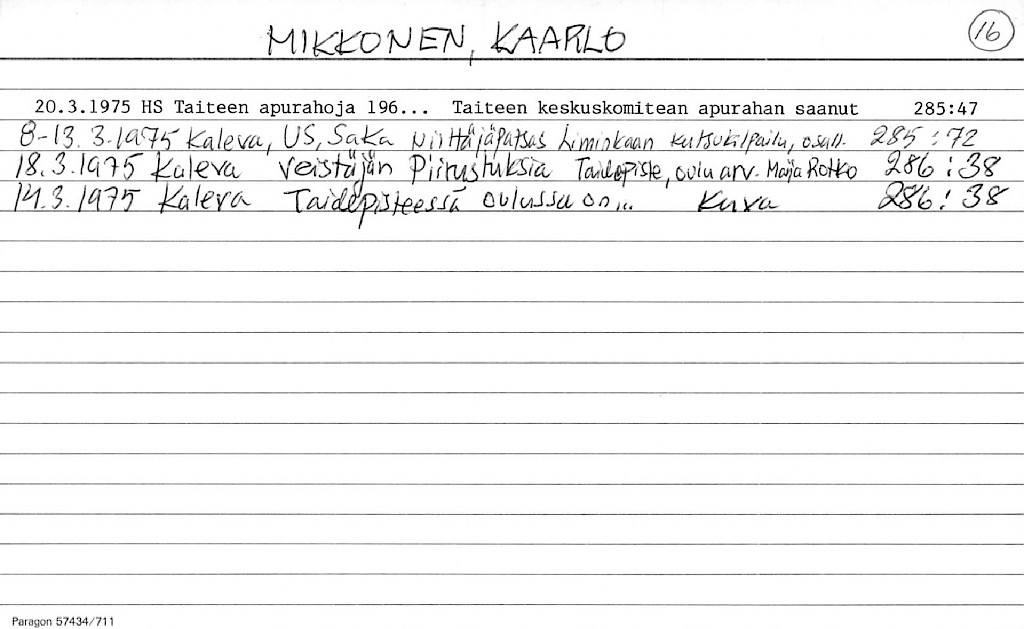 MIKKONEN, KAARLO
16
20.3.1975 HS Taiteen apurahoja 196... Taiteen keskuskomitean apurahan saanut 285:47
8-13.3.1975 Kaleva, US, SaKa Niittäjäpatsas Liminkaan kutsukilpailu, osall. 285:72
18.3.1975 Kaleva Veistäjän Piirustuksia Taidepiste, oulu arv. Maija Rotko 286:38
14.3.1975 Kaleva Taidepisteessä oulussa on... Kuva 286:38
Paragon 57434/711